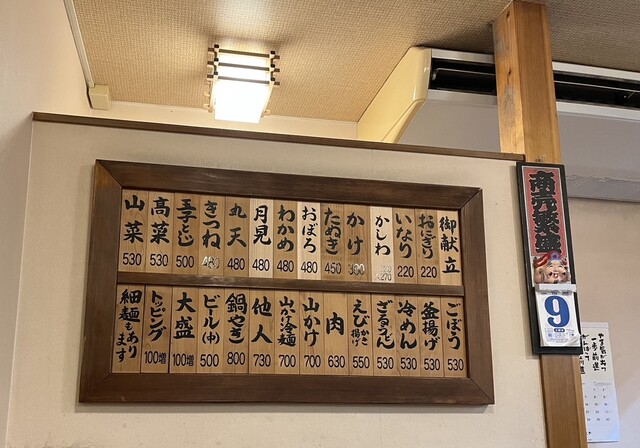 御献立
おにぎり 220
いなり 220
かしわ
かけ
たぬき 450
おぼろ 480
わかめ 480
月見 480
丸天 480
きつね 480
玉子とじ 500
高菜 530
山菜 530
ごぼう 530
釜揚げ 530
冷めん 530
ざるうどん 530
えびかき揚げ 550
肉 630
山かけ 700
山かけ冷麺 700
他人 730
鍋やき 800
ビール(中) 500
大盛 100増
トッピング 100増
細麺もあります
商売繁盛
9